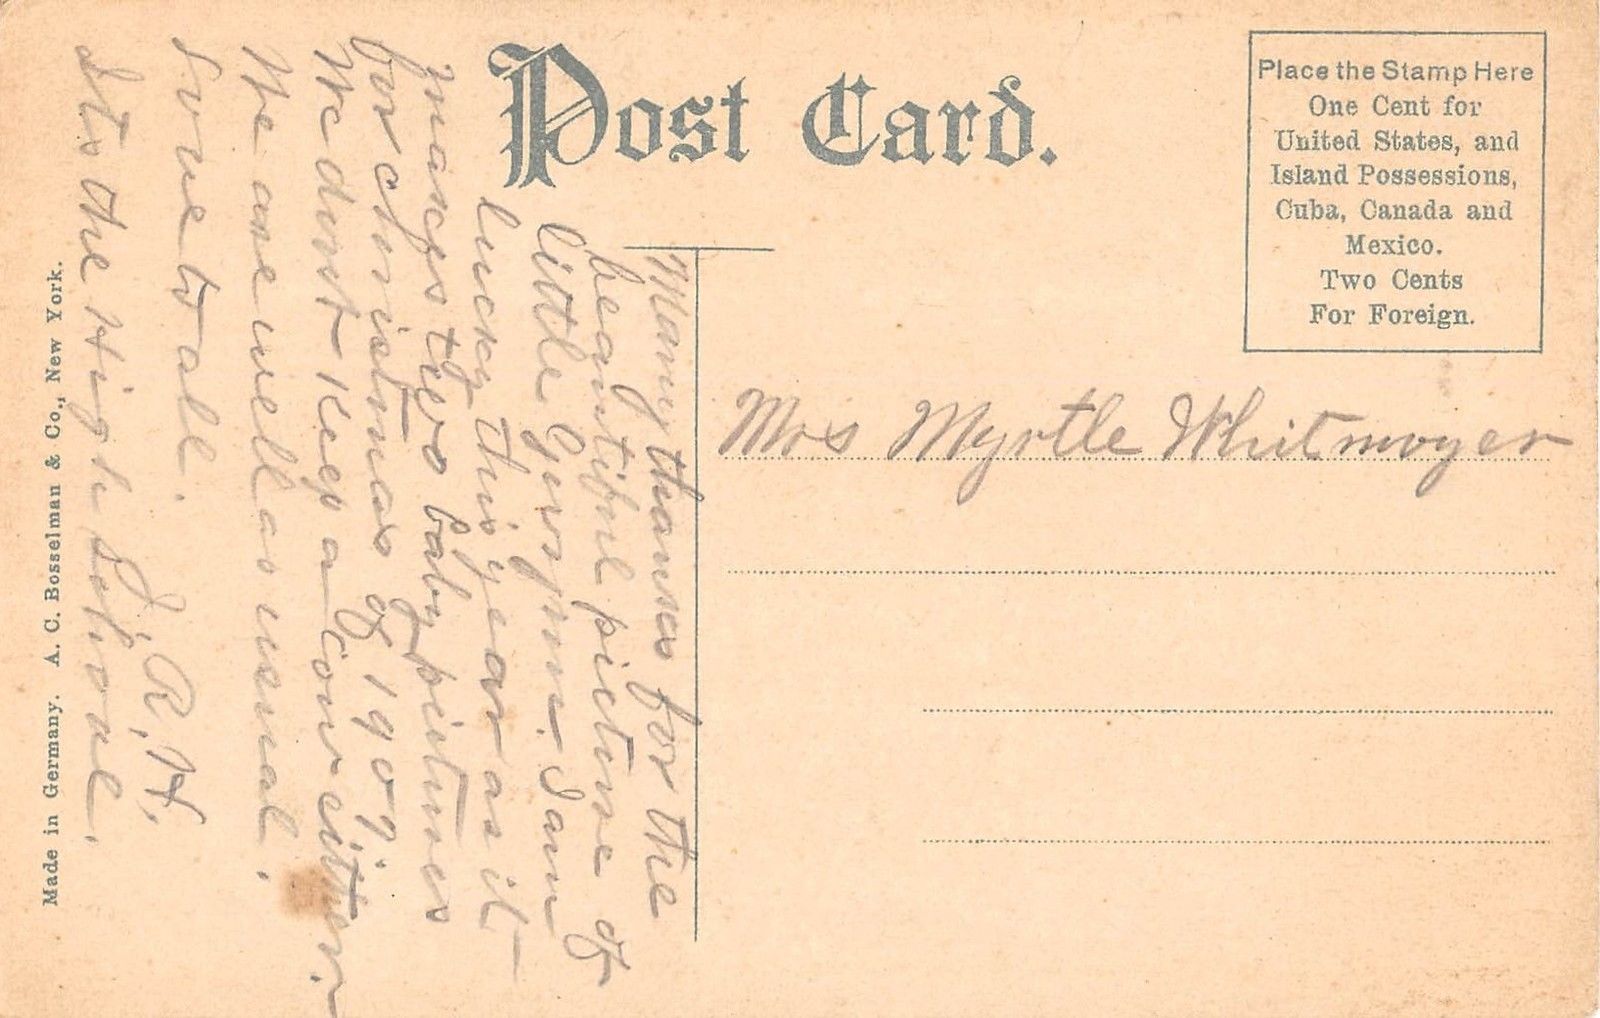 Post Card.
Place the Stamp Here
One Cent for
United States, and
Island Possessions,
Cuba, Canada and
Mexico.
Two Cents
For Foreign.
Mrs Myrtle Whitmoyer
Many thanks for the
beautiful picture of
little. I am
lucky this year as it
makes two baby pictures
for christmas of 1909.
We dont keep a cow either.
We are well as usual.
Love to all.
J. R. H.
Its the High School.
Made in Germany. A. C. Bosselman & Co., New York.